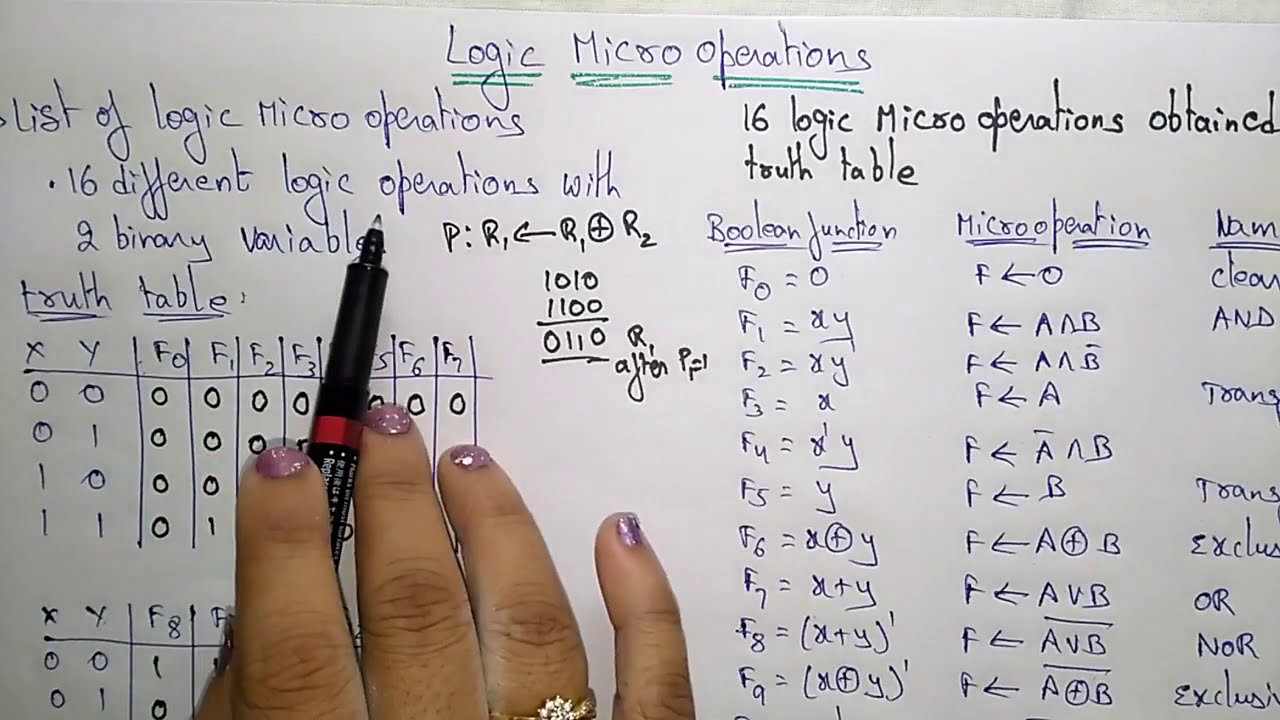 Logic Micro operations
List of logic Micro operations
· 16 different logic operations with
2 binary variable
P: R₁ ← R₁ ⊕ R₂
1010
1100
0110 R₁
after P=1
truth table:
X Y F₀ F₁ F₂ F₃ F₆ F₇
0 0 0 0 0 0 0 0 0
0 1 0 0 0
1 0 0 0
1 1 0 1
X Y F₈
0 0 1
0 1 0
16 logic Micro operations obtained
truth table
Boolean function Micro operation Nam
F₀ = 0 F ← 0 clear
F₁ = xy F ← A∧B AND
F₂ = xy' F ← A∧B̅
F₃ = x F ← A Trans
F₄ = x'y F ← A̅∧B
F₅ = y F ← B Trans
F₆ = x⊕y F ← A⊕B Exclus
F₇ = x+y F ← A∨B OR
F₈ = (x+y)' F ← A̅∨̅B̅ NOR
F₉ = (x⊕y)' F ← A̅⊕̅B̅ Exclusi